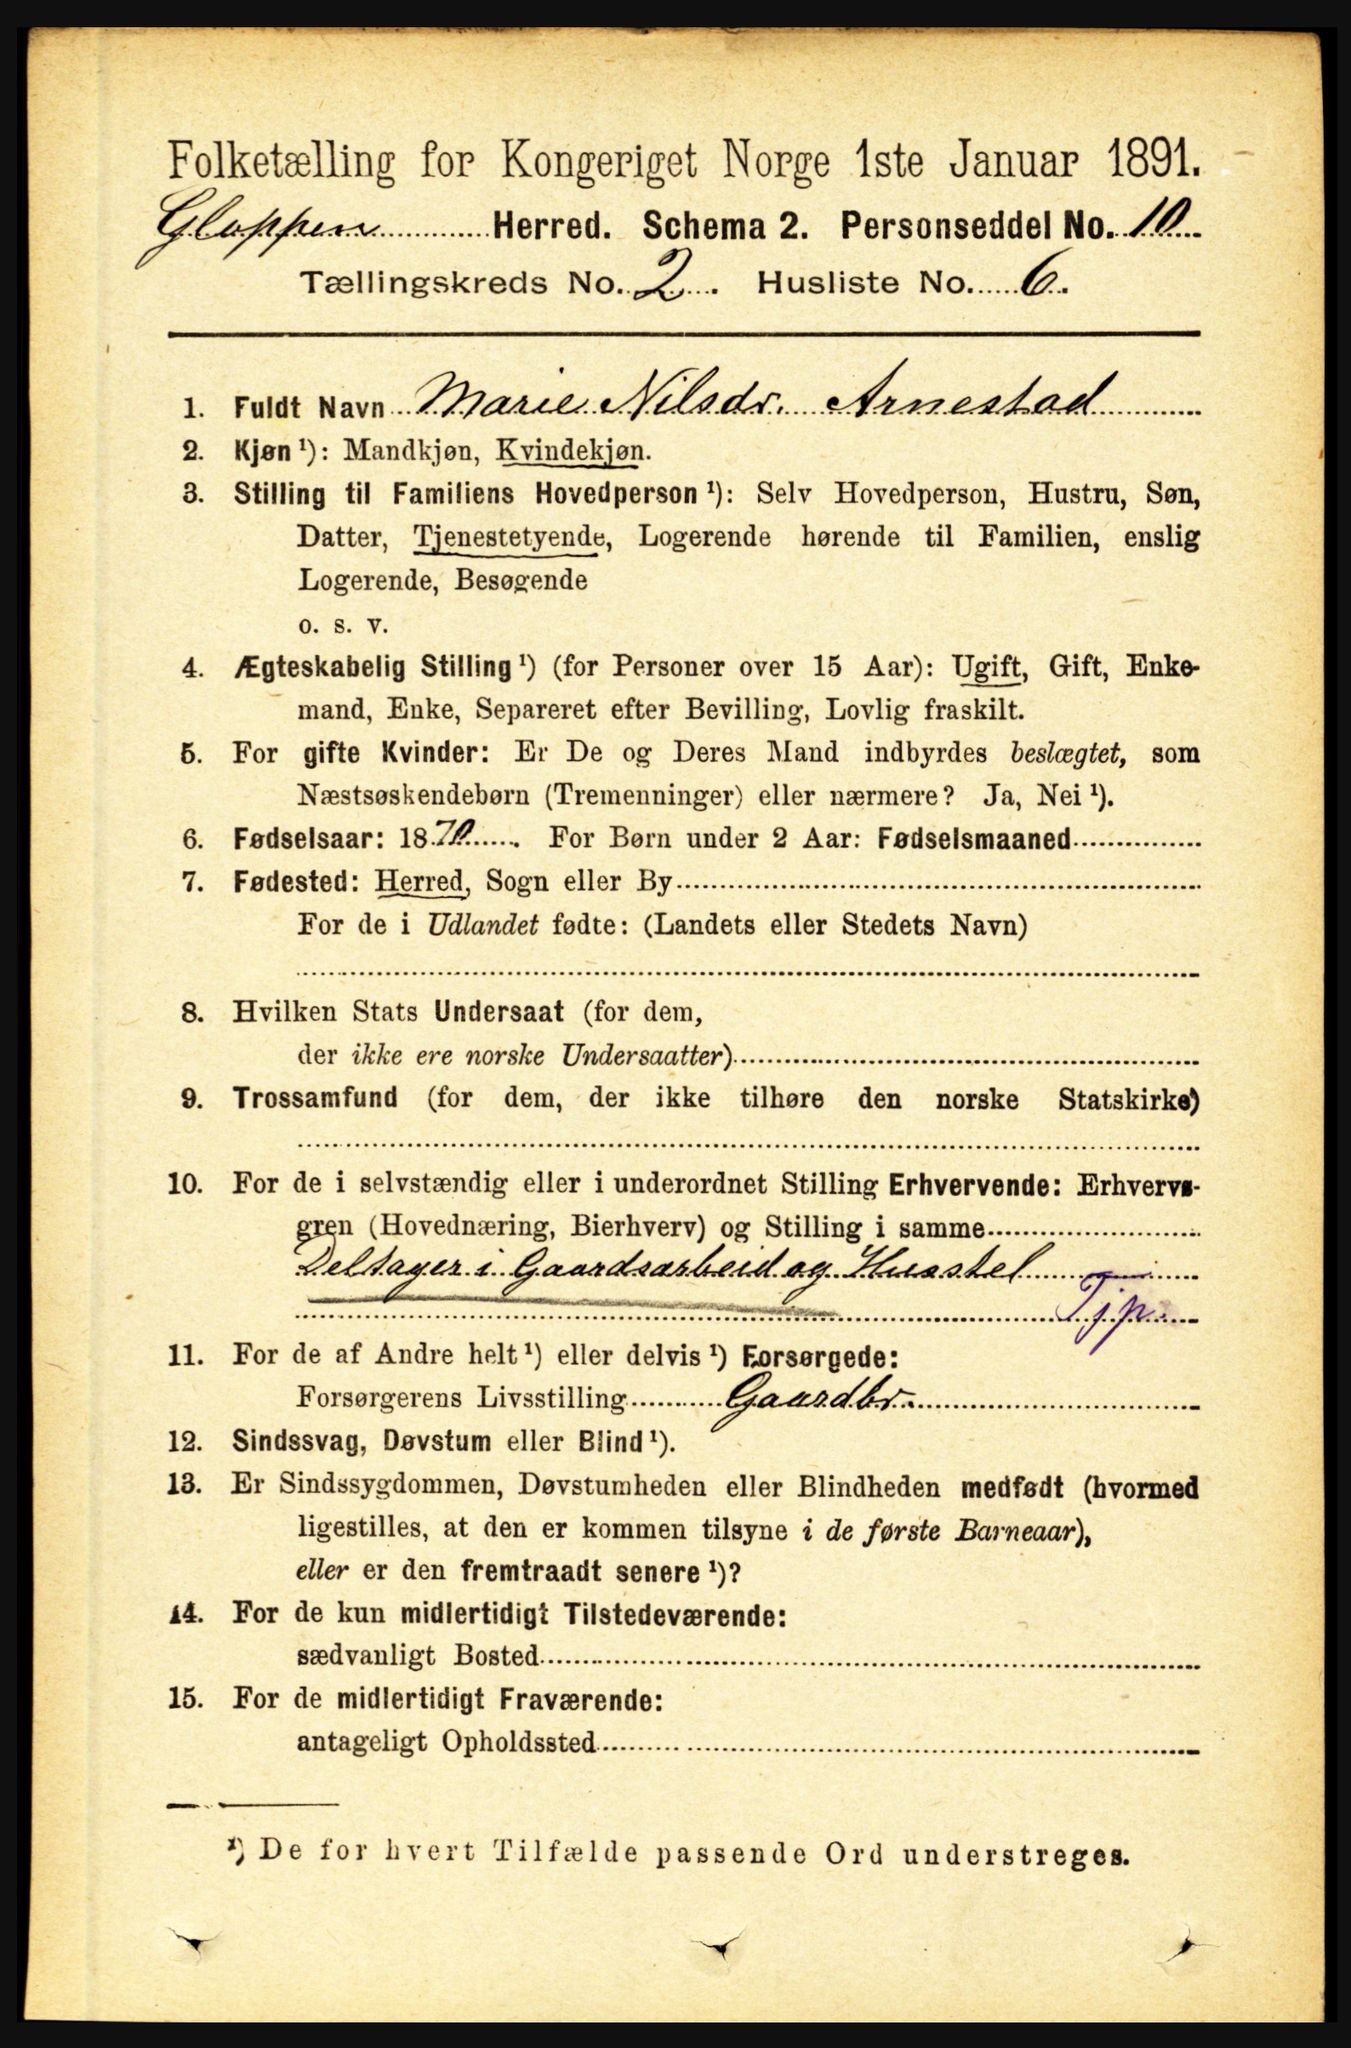 Folketælling for Kongeriget Norge 1ste Januar 1891.
Gloppen Herred. Schema 2. Personseddel No. 10
Tællingskreds No. 2. Husliste No. 6.
1. Fuldt Navn Marie Nilsdr. Arnestad
2. Kjøn ¹): Mandkjøn, Kvindekjøn.
3. Stilling til Familiens Hovedperson ¹): Selv Hovedperson, Hustru, Søn,
Datter, Tjenestetyende, Logerende hørende til Familien, enslig
Logerende, Besøgende
o. s. v.
4. Ægteskabelig Stilling ¹) (for Personer over 15 Aar): Ugift, Gift, Enke-
mand, Enke, Separeret efter Bevilling, Lovlig fraskilt.
5. For gifte Kvinder: Er De og Deres Mand indbyrdes beslægtet, som
Næstsøskendebørn (Tremenninger) eller nærmere? Ja, Nei ¹).
6. Fødselsaar: 1870. For Børn under 2 Aar: Fødselsmaaned
7. Fødested: Herred, Sogn eller By
For de i Udlandet fødte: (Landets eller Stedets Navn)
8. Hvilken Stats Undersaat (for dem,
der ikke ere norske Undersaatter)
9. Trossamfund (for dem, der ikke tilhøre den norske Statskirke)
10. For de i selvstændig eller i underordnet Stilling Erhvervende: Erhvervs-
gren (Hovednæring, Bierhverv) og Stilling i samme
Deltager i Gaardsarbeid og Husstel
Tjp.
11. For de af Andre helt ¹) eller delvis ¹) Forsørgede:
Forsørgerens Livsstilling Gaardbr.
12. Sindssvag, Døvstum eller Blind ¹).
13. Er Sindssygdommen, Døvstumheden eller Blindheden medfødt (hvormed
ligestilles, at den er kommen tilsyne i de første Barneaar),
eller er den fremtraadt senere ¹)?
14. For de kun midlertidigt Tilstedeværende:
sædvanligt Bosted
15. For de midlertidigt Fraværende:
antageligt Opholdssted
¹) De for hvert Tilfælde passende Ord understreges.